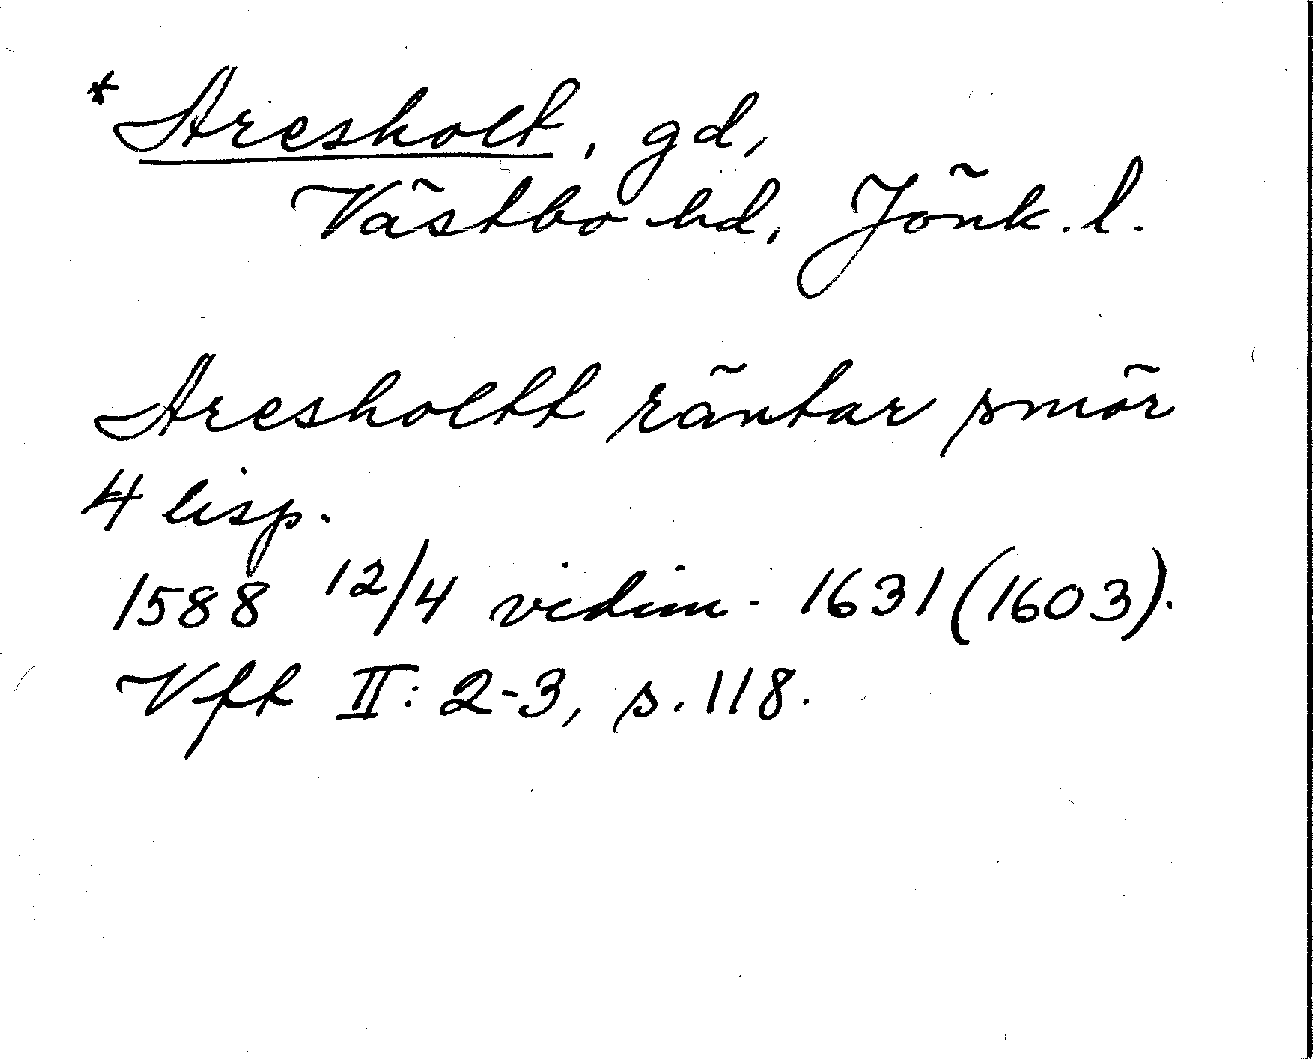 *Aresholt, gd,
Västbo hd, Jönk. l.
Aresholtt räntar smör
4 lisp.
1588 12/4 vidim. 1631 (1603).
Vft II: 2-3, s. 118.